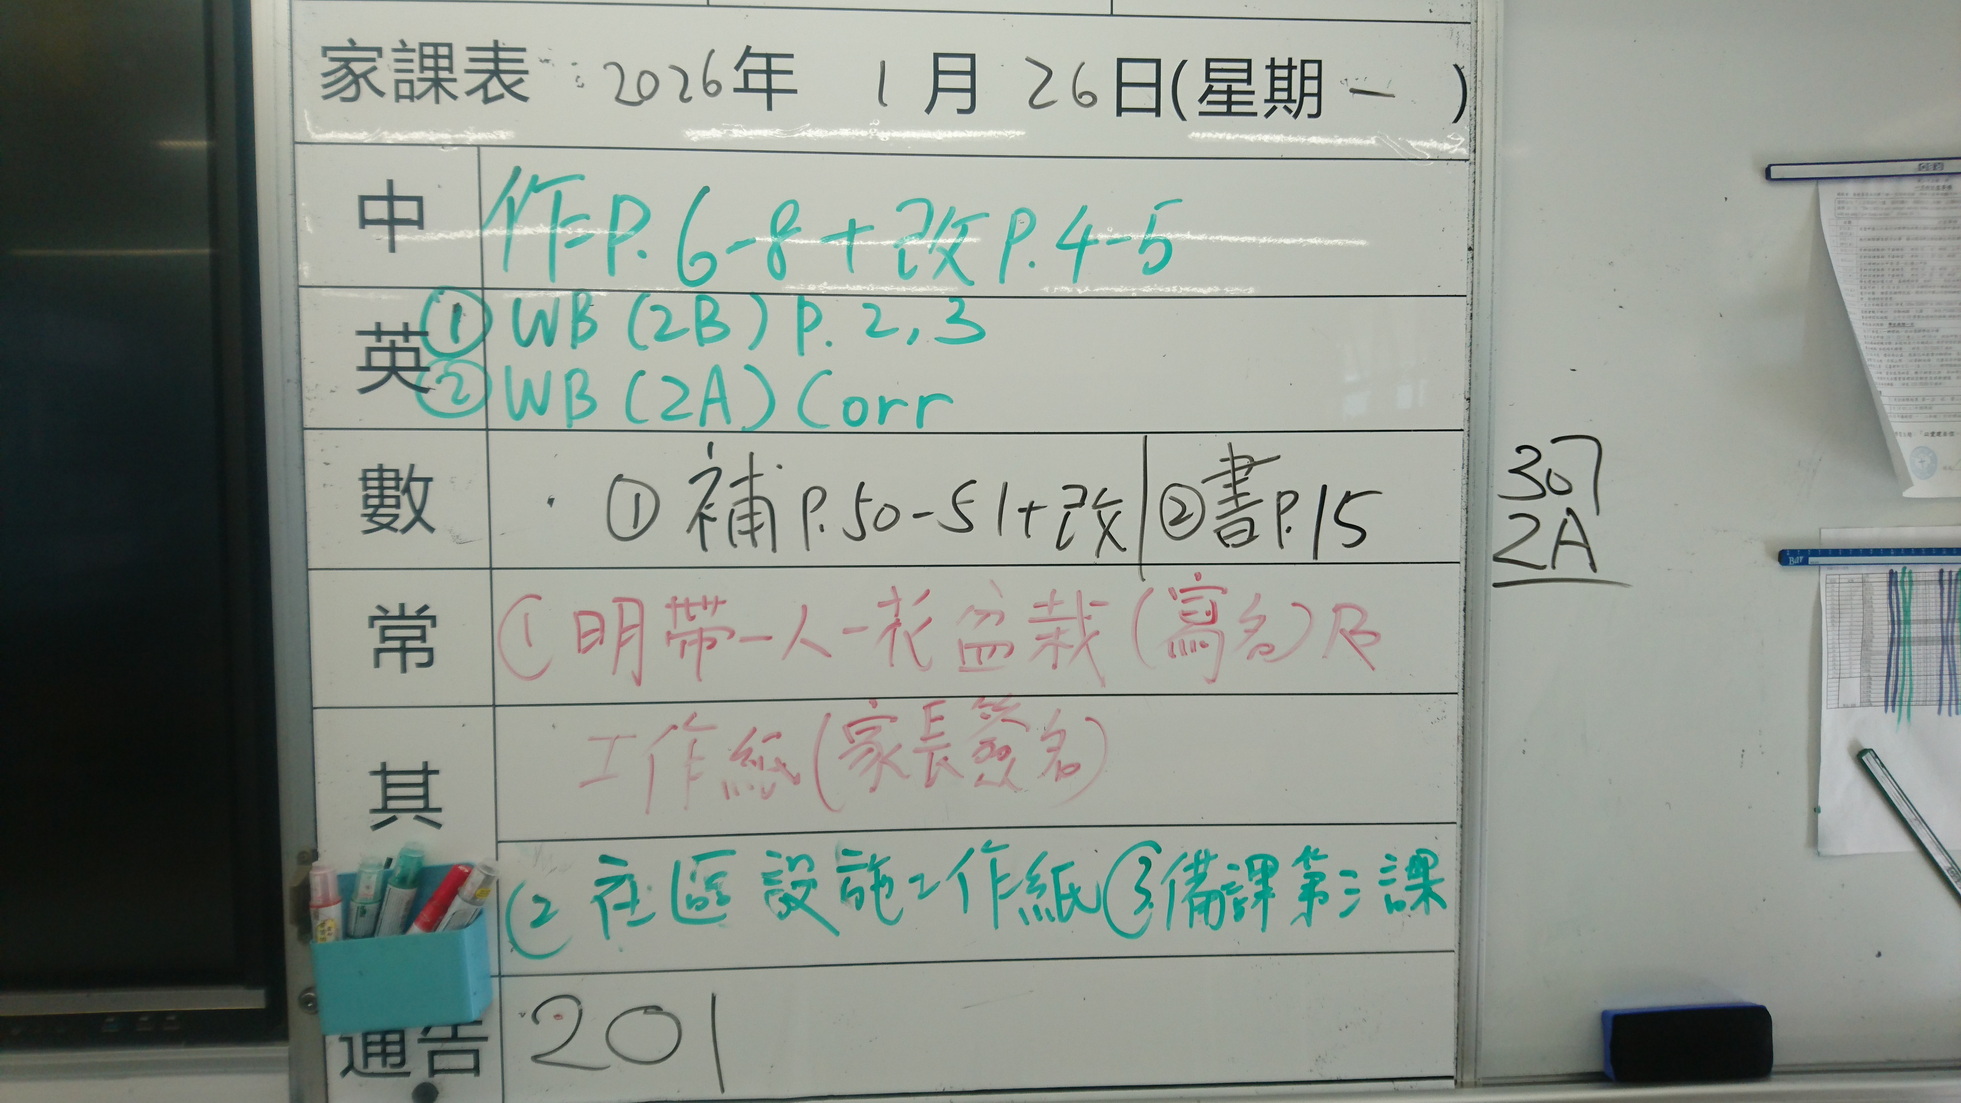 家課表:2026年 1月 26日(星期一)
中 作P.6-8+改P.4-5
英 ① WB (2B) P. 2, 3
② WB (2A) Corr
數 ① 補P.50-51+改 | ② 書P.15
307
2A
常 ① 明帶一人一花盆栽(寫名)及
工作紙(家長簽名)
其
② 社區設施工作紙 ③ 備課第三課
通告 201